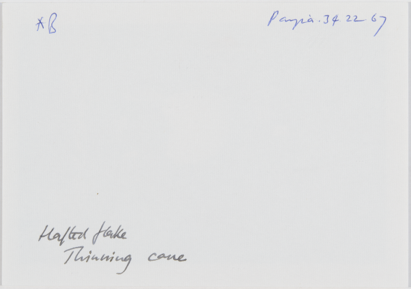 *B
Pangia. 34 22 67
Hafted flake
Thinning cane